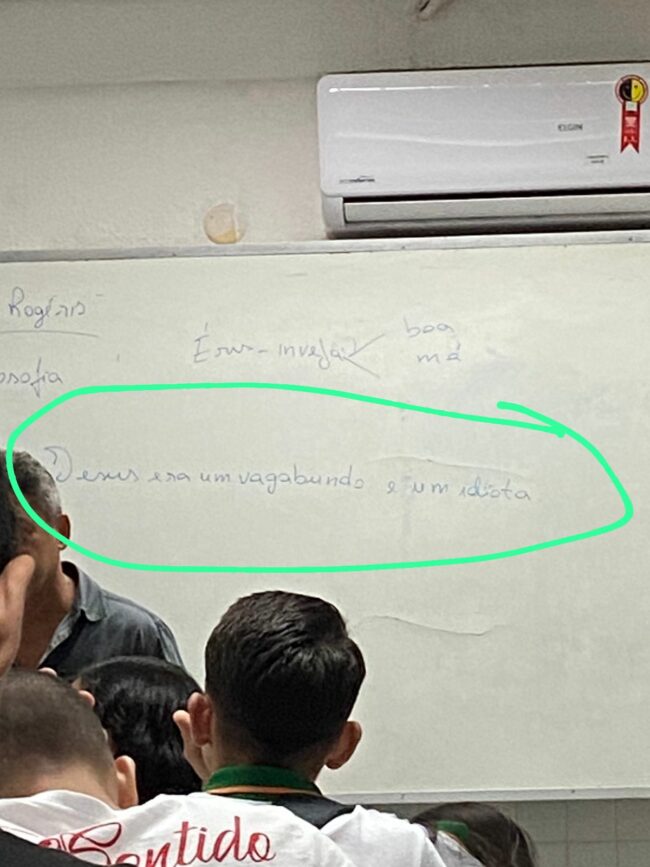 ELGIN
Rogério
osofia
Érus - inveja
boa
má
Jesus era um vagabundo e um idiota
Sentido